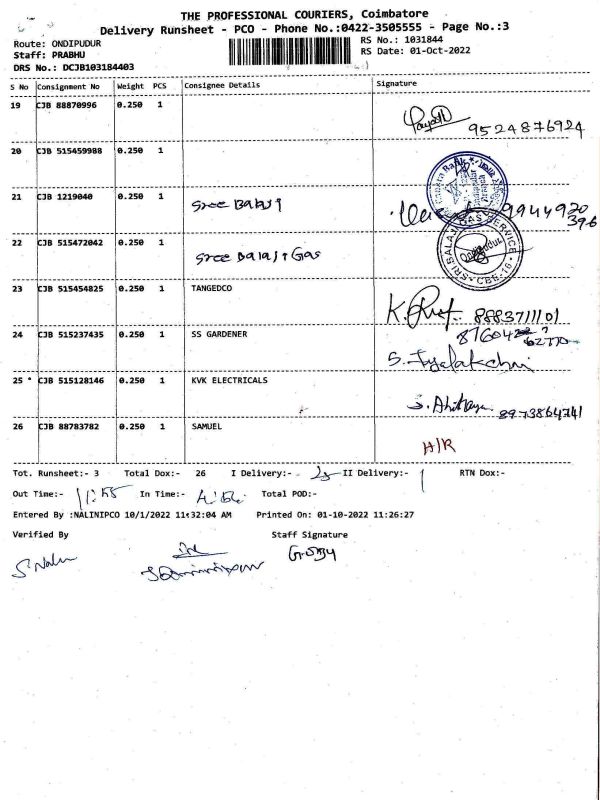 THE PROFESSIONAL COURIERS, Coimbatore
Delivery Runsheet - PCO - Phone No.:0422-3505555 - Page No.:3
Route: ONDIPUDUR RS No.: 1031844
Staff: PRABHU RS Date: 01-Oct-2022
DRS No.: DCJB103184403
S No Consignment No Weight PCS Consignee Details Signature
19 CJB 88870996 0.250 1 9524876924
20 CJB 515459988 0.250 1
Canara Bank
21 CJB 1219040 0.250 1 Sree Balaji 9944920
396
22 CJB 515472042 0.250 1 Sree Balaji Gas
SRI BALAJI GAS SERVICE Ondipudur CBE-16
23 CJB 515454825 0.250 1 TANGEDCO 8883711101
24 CJB 515237435 0.250 1 SS GARDENER
25 * CJB 515128146 0.250 1 KVK ELECTRICALS 8973864741
26 CJB 88783782 0.250 1 SAMUEL H/R
Tot. Runsheet:- 3 Total Dox:- 26 I Delivery:- II Delivery:- RTN Dox:-
Out Time:- 11:55 In Time:- Total POD:-
Entered By :NALINIPCO 10/1/2022 11:32:04 AM Printed On: 01-10-2022 11:26:27
Verified By Staff Signature